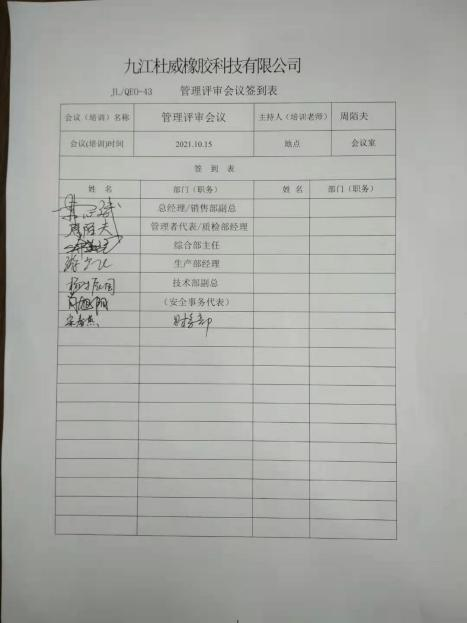 九江杜威橡胶科技有限公司
JL/QEO-43 管理评审会议签到表
会议（培训）名称 管理评审会议 主持人（培训老师） 周陌夫
会议(培训)时间 2021.10.15 地点 会议室
签 到 表
姓 名 部门（职务） 姓 名 部门（职务）
总经理/销售部副总
周陌夫 管理者代表/质检部经理
综合部主任
生产部经理
技术部副总
（安全事务代表）
财务部